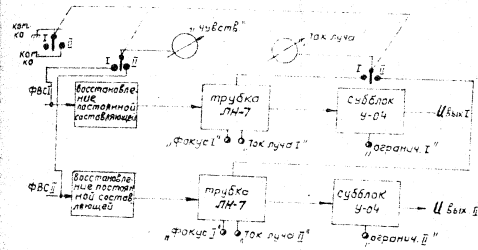 ком.
ка
I
II
ком.
ка
I
II
„чувств"
ток луча
I
II
ФВС I
восстановле-
ние
постоянной
составляющей
трубка
ЛН-7
субблок
У-04
U вых I
„Фокус I"
„Ток луча I"
„огранич. I"
ФВС II
восстановле-
ние постоян-
ной состав-
ляющей
трубка
ЛН-7
субблок
У-04
U вых II
„Фокус II"
„Ток луча II"
„огранич. II"